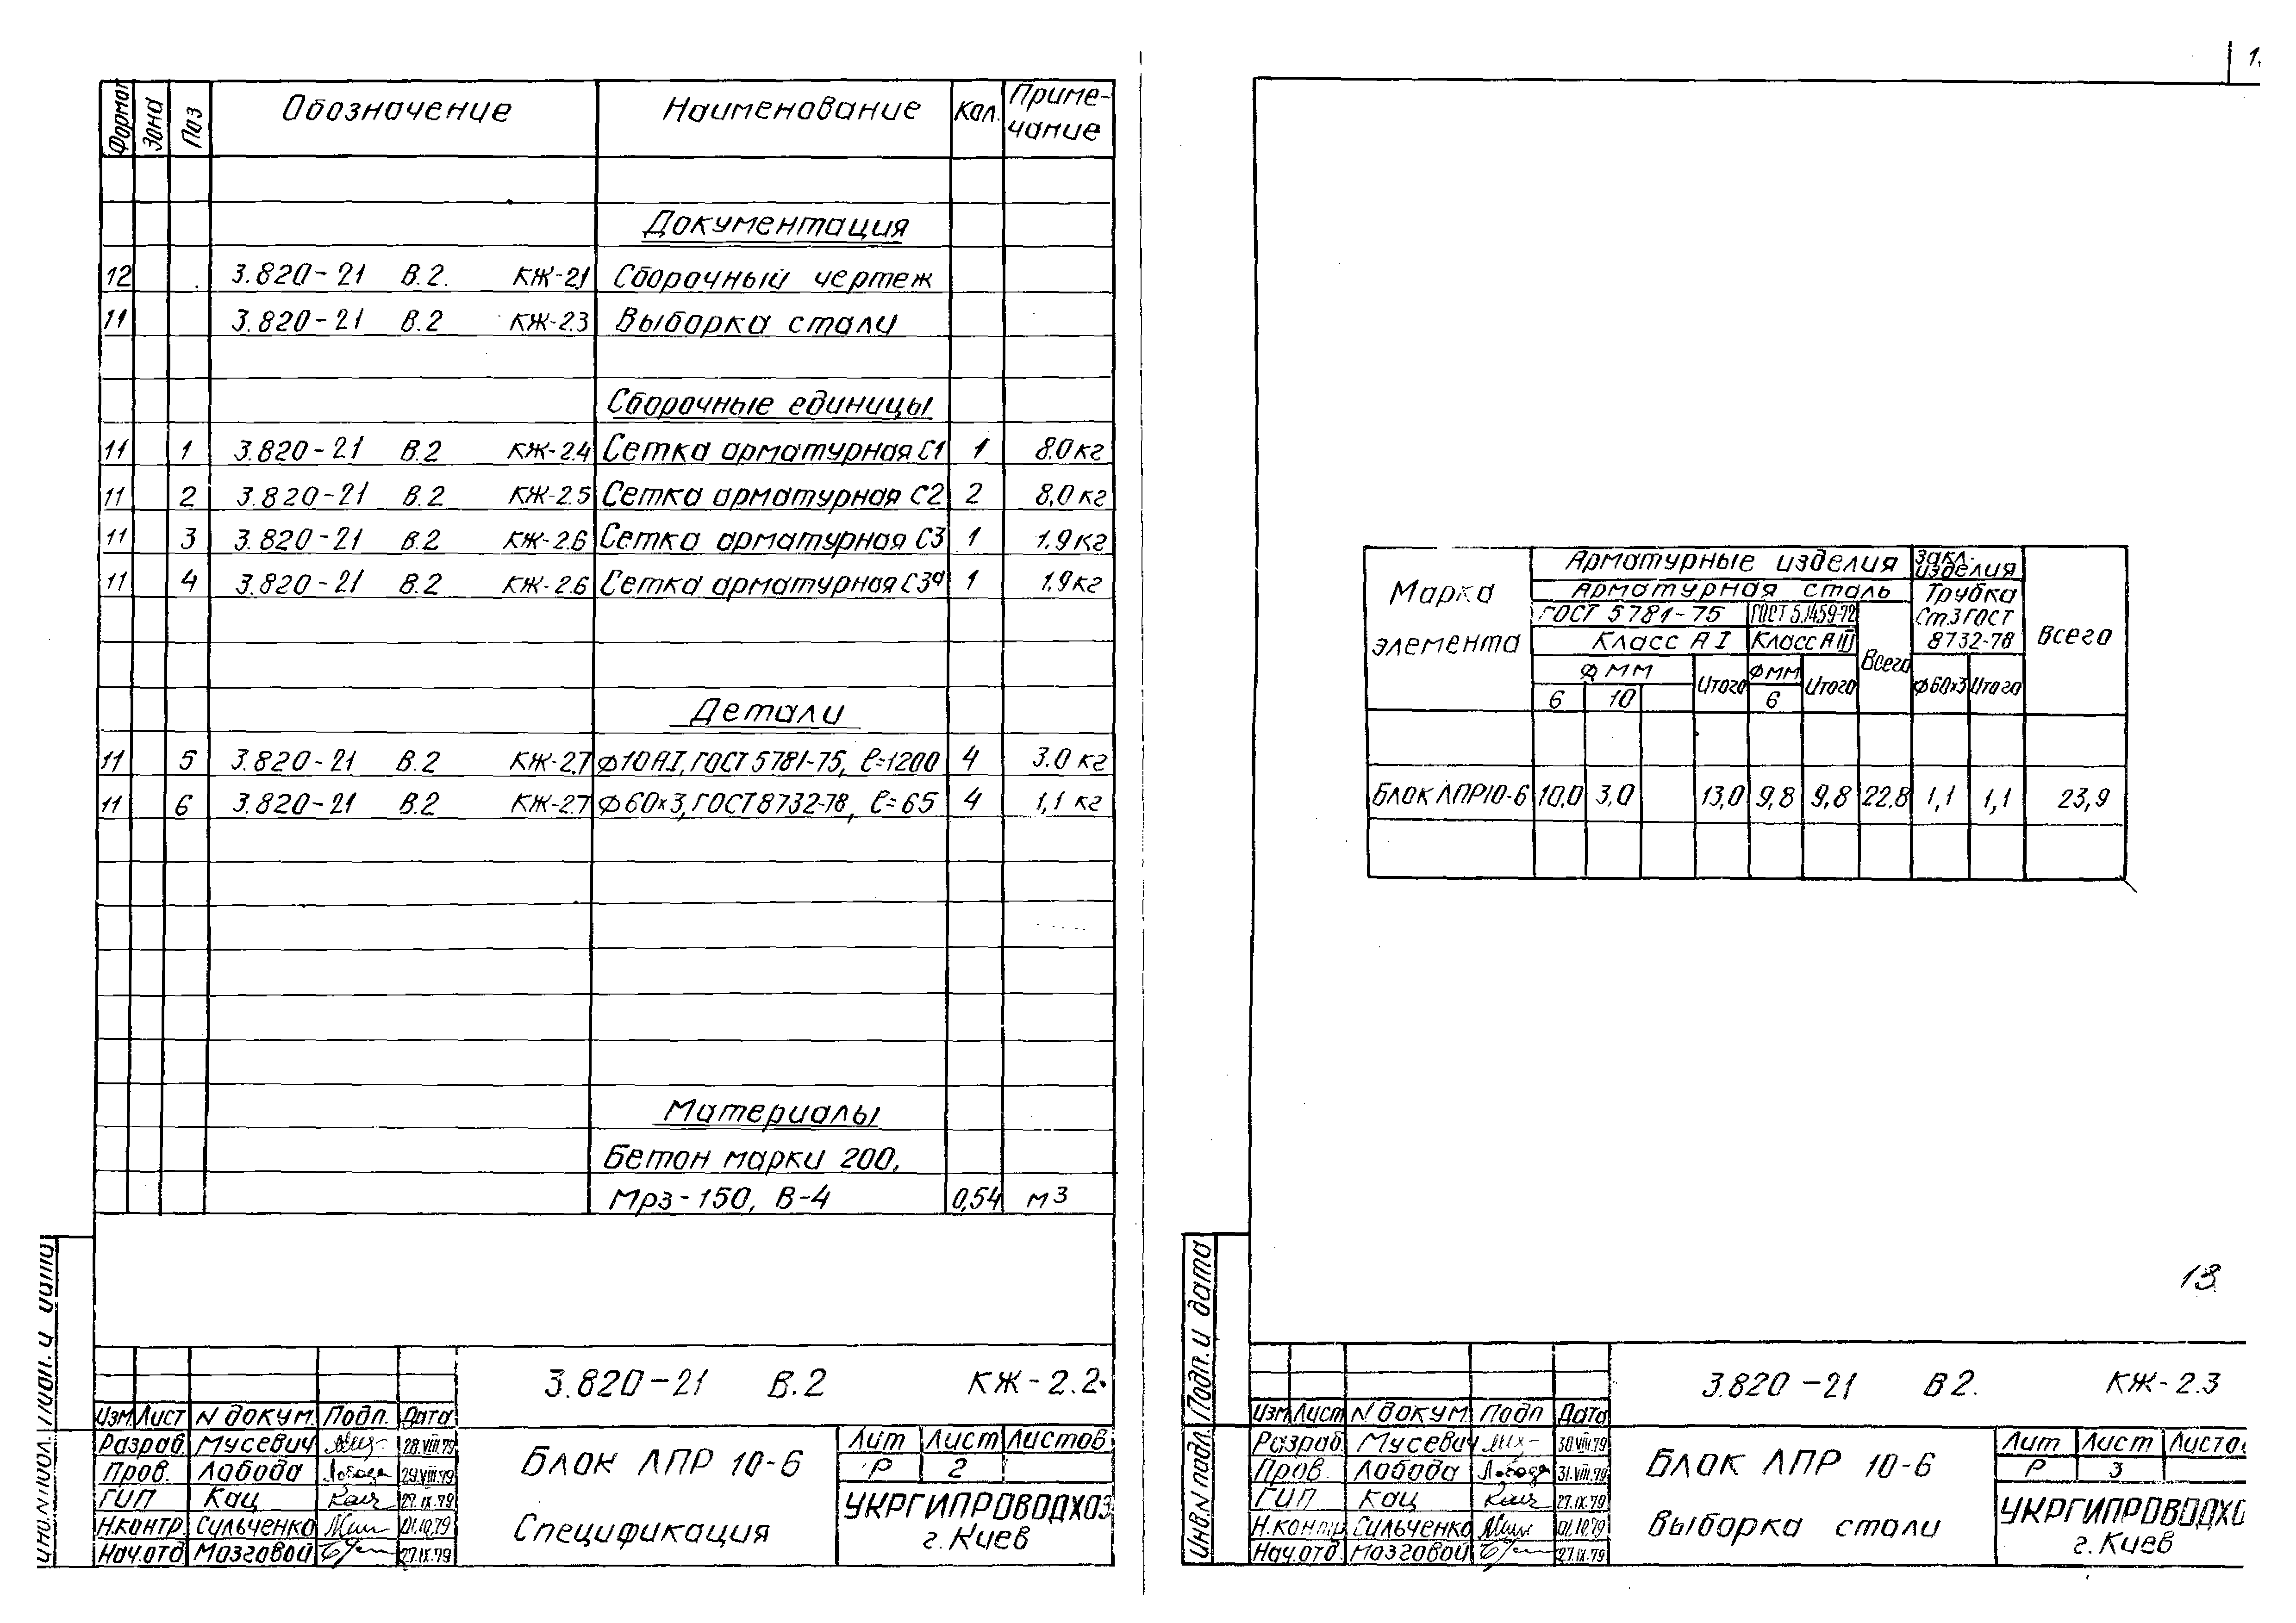 Формат Зона Поз Обозначение Наименование Кол. Приме-
чание
Документация
12 3.820-21 В.2. КЖ-2.1 Сборочный чертеж
11 3.820-21 В.2 КЖ-2.3 Выборка стали
Сборочные единицы
11 1 3.820-21 В.2 КЖ-2.4 Сетка арматурная С1 1 8.0 кг
11 2 3.820-21 В.2 КЖ-2.5 Сетка арматурная С2 2 8,0 кг
11 3 3.820-21 В.2 КЖ-2.6 Сетка арматурная С3 1 1.9 кг
11 4 3.820-21 В.2 КЖ-2.6 Сетка арматурная С3а 1 1.9 кг
Детали
11 5 3.820-21 В.2 КЖ-2.7 ф10 АI, ГОСТ 5781-75, ℓ=1200 4 3.0 кг
11 6 3.820-21 В.2 КЖ-2.7 ф60х3, ГОСТ 8732-78, ℓ=65 4 1,1 кг
Материалы
Бетон марки 200,
Мрз-150, В-4 0,54 м3
3.820-21 В.2 КЖ-2.2
Изм. Лист N докум. Подп. Дата
Разраб. Мусевич 28.VIII.79
Пров. Лобода 29.VIII.79
ГИП Кац 27.IX.79
Н.контр. Сильченко 01.10.79
Нач.отд Мозговой 27.IX.79
Блок ЛПР 10-6
Спецификация
Лит Лист Листов
Р 2
УКРГИПРОВОДХОЗ
г. Киев
Марка
элемента
Арматурные изделия
Закл.
изделия
Всего
Арматурная сталь
Трубка
Ст3 ГОСТ
8732-78
ГОСТ 5781-75 ГОСТ 5.1459-72 Всего
Класс А I Класс А III
ф мм Итого ф мм Итого ф60х3 Итого
6 10 6
Блок ЛПР10-6 10,0 3,0 13,0 9,8 9,8 22,8 1,1 1,1 23,9
13
Инв.N подл. Подп. и дата
3.820-21 В2. КЖ-2.3
Изм Лист N докум. Подп Дата
Разраб. Мусевич 30.VIII.79
Пров. Лобода 31.VIII.79
ГИП Кац 27.IX.79
Н.контр Сильченко 01.10.79
Нач.отд. Мозговой 27.IX.79
Блок ЛПР 10-6
Выборка стали
Лит Лист Листо
Р 3
УКРГИПРОВОДХО
г. Киев